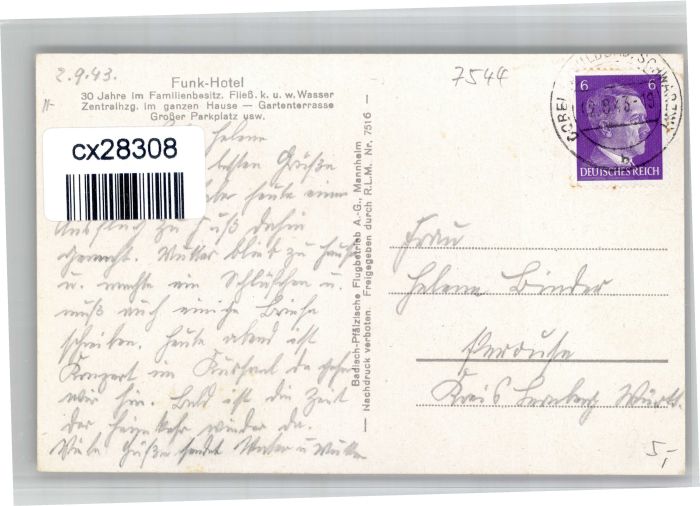 2.9.43.
Funk-Hotel
30 Jahre im Familienbesitz. Fließ. k. u. w. Wasser
Zentralhzg. im ganzen Hause — Gartenterrasse
Großer Parkplatz usw.
7544
cx28308
Helene
besten Grüße
heute einen
Ausflug zu Fuß dahin
gemacht. Mutter blieb zu Haus
u. machte ein Schläfchen u.
muß auch einige Briefe
schreiben. Heute abend ist
Konzert im Kursaal da gehen
wir hin. Bald ist die Zeit
der Heimkehr wieder da.
Viele Grüße sendet Vater u Mutter
Badisch-Pfälzische Flugbetrieb A.-G., Mannheim
Nachdruck verboten. Freigegeben durch R.L.M. Nr. 7516
6 6
DEUTSCHES REICH
Frau
Helene Binder
Perouse
Kreis Leonberg Württ.
5,-